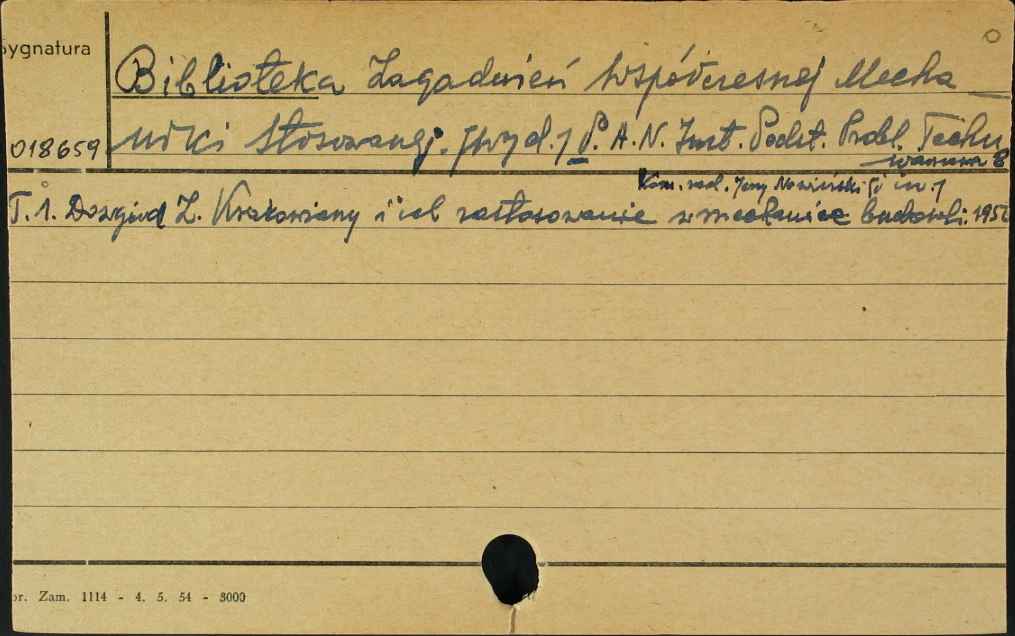 Sygnatura
Biblioteka Zagadnień Współczesnej Mecha
018659 niki Stosowanej. [Wyd.] P. A. N. Inst. Podst. Probl. Techn.
Warszawa 8
Kom. red. Jerzy Nowiński [i in.]
T. 1. Dowgird Z. Krakowiany i ich zastosowanie w mechanice budowli. 195
or. Zam. 1114 - 4. 5. 54 - 3000